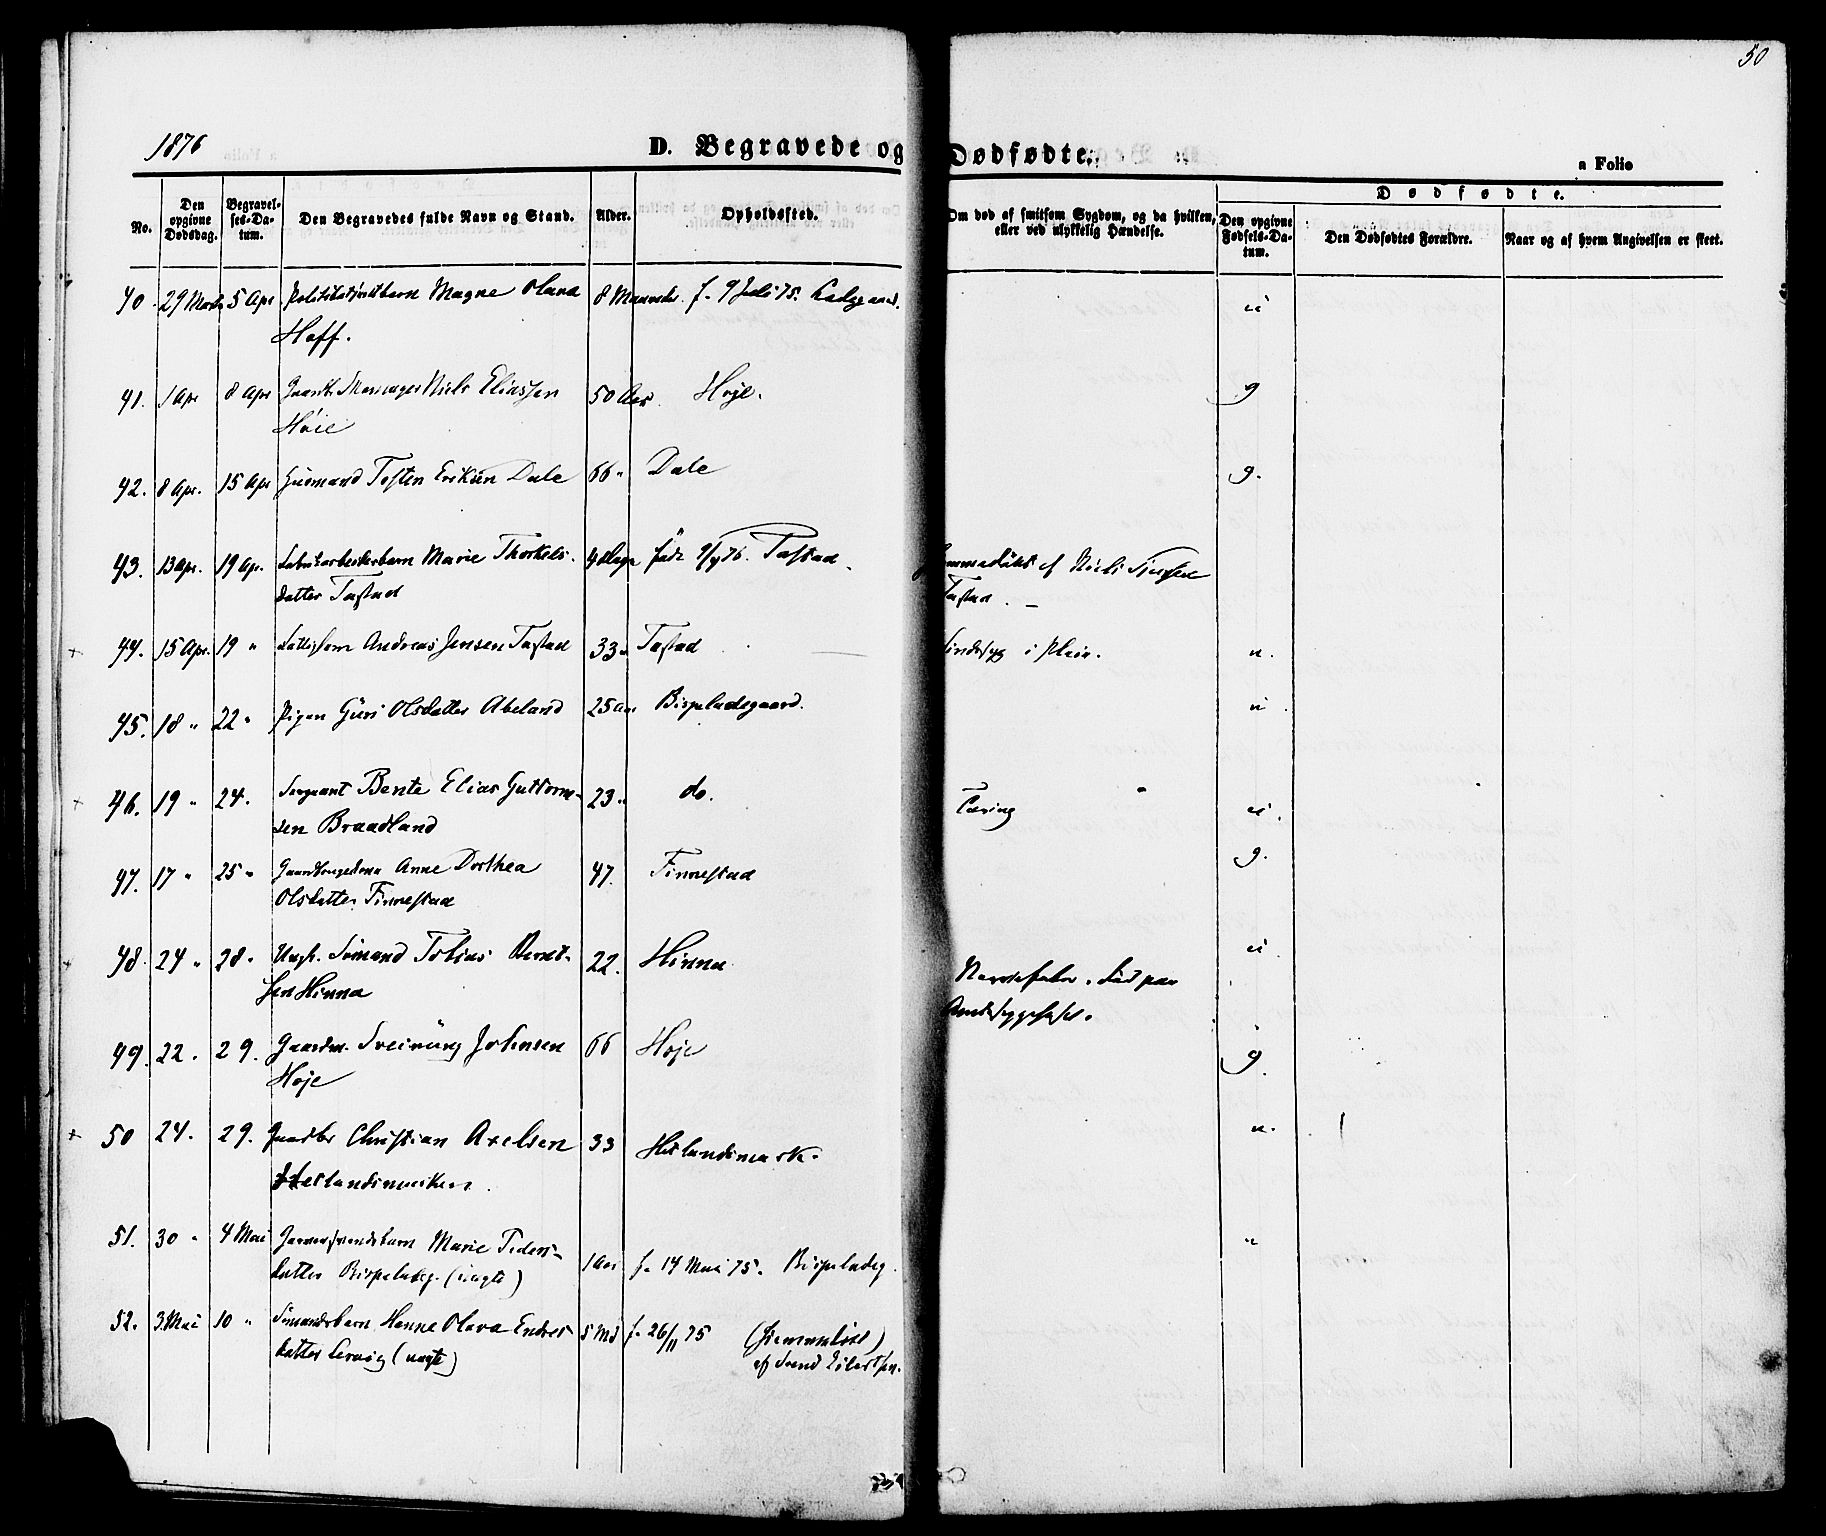 50
1876
D. Begravede og Dødfødte.
a Folio
No.
Den opgivne Dødsdag.
Begravelses-Datum.
Den Begravedes fulde Navn og Stand.
Alder.
Opholdssted.
Om død af smitsom Sygdom, og da hvilken, eller ved ulykkelig Hændelse.
Dødfødte.
Den opgivne Fødsels-Datum.
Den Dødfødtes Forældre.
Naar og af hvem Angivelsen er skeet.
40. 29 Marts 5 Apr Magne Olava 8 Maaneder f. 9 Juli 75. u
Hoff.
41. 1 Apr 8 Apr Niels Eliassen 50 Aar Høje. g
Høie
42. 8 Apr. 15 Apr Huusmand Tosten Eriksen Dale 66 " Dale g.
43. 13 Apr. 19 Ap. Marie Thorkels- 4 Dage født 9/4 76. Tastad. Hjemmedöbt af Niels
datter Tastad Tastad. –
44. 15 Apr. 19 " Andreas Jensen Tastad 33 " Tastad Sindssyg i Pleie. u.
45. 18 " 22 " Pigen Guri Olsdatter Abeland 25 Aar Bispeladegaard. u.
46. 19 " 24. Sergeant Bente Elias Guttorm- 23 " do. Tæring u.
sen Braadland
47. 17 " 25 " Anne Dorthea 47. Finnestad g.
Olsdatter Finnestad
48. 24 " 28 " Ungk. Sømand Tobias Bernt- 22. Hinna u
sen Hinna Nervefeber. Död paa
Amtssygehuset.
49. 22. 29. Gaardm. Sveinung Johnsen 66 Høje g.
Høje
50 24. 29. Christian Axelsen 33 Hetlandsmark. u.
Hetlandsmarken.
51. 30 " 4 Mai Marie Peders- 1 Aar f. 14 Mai 75. Bispeladeg. "
datter Bispeladeg. (uægte)
52. 3. Mai 10 " Sømandsbarn Hanne Olava Endres- 5 Md f. 26/11 75 (Hjemmedöbt)
datter Lervig (uægte) af Svend Eilertsen.